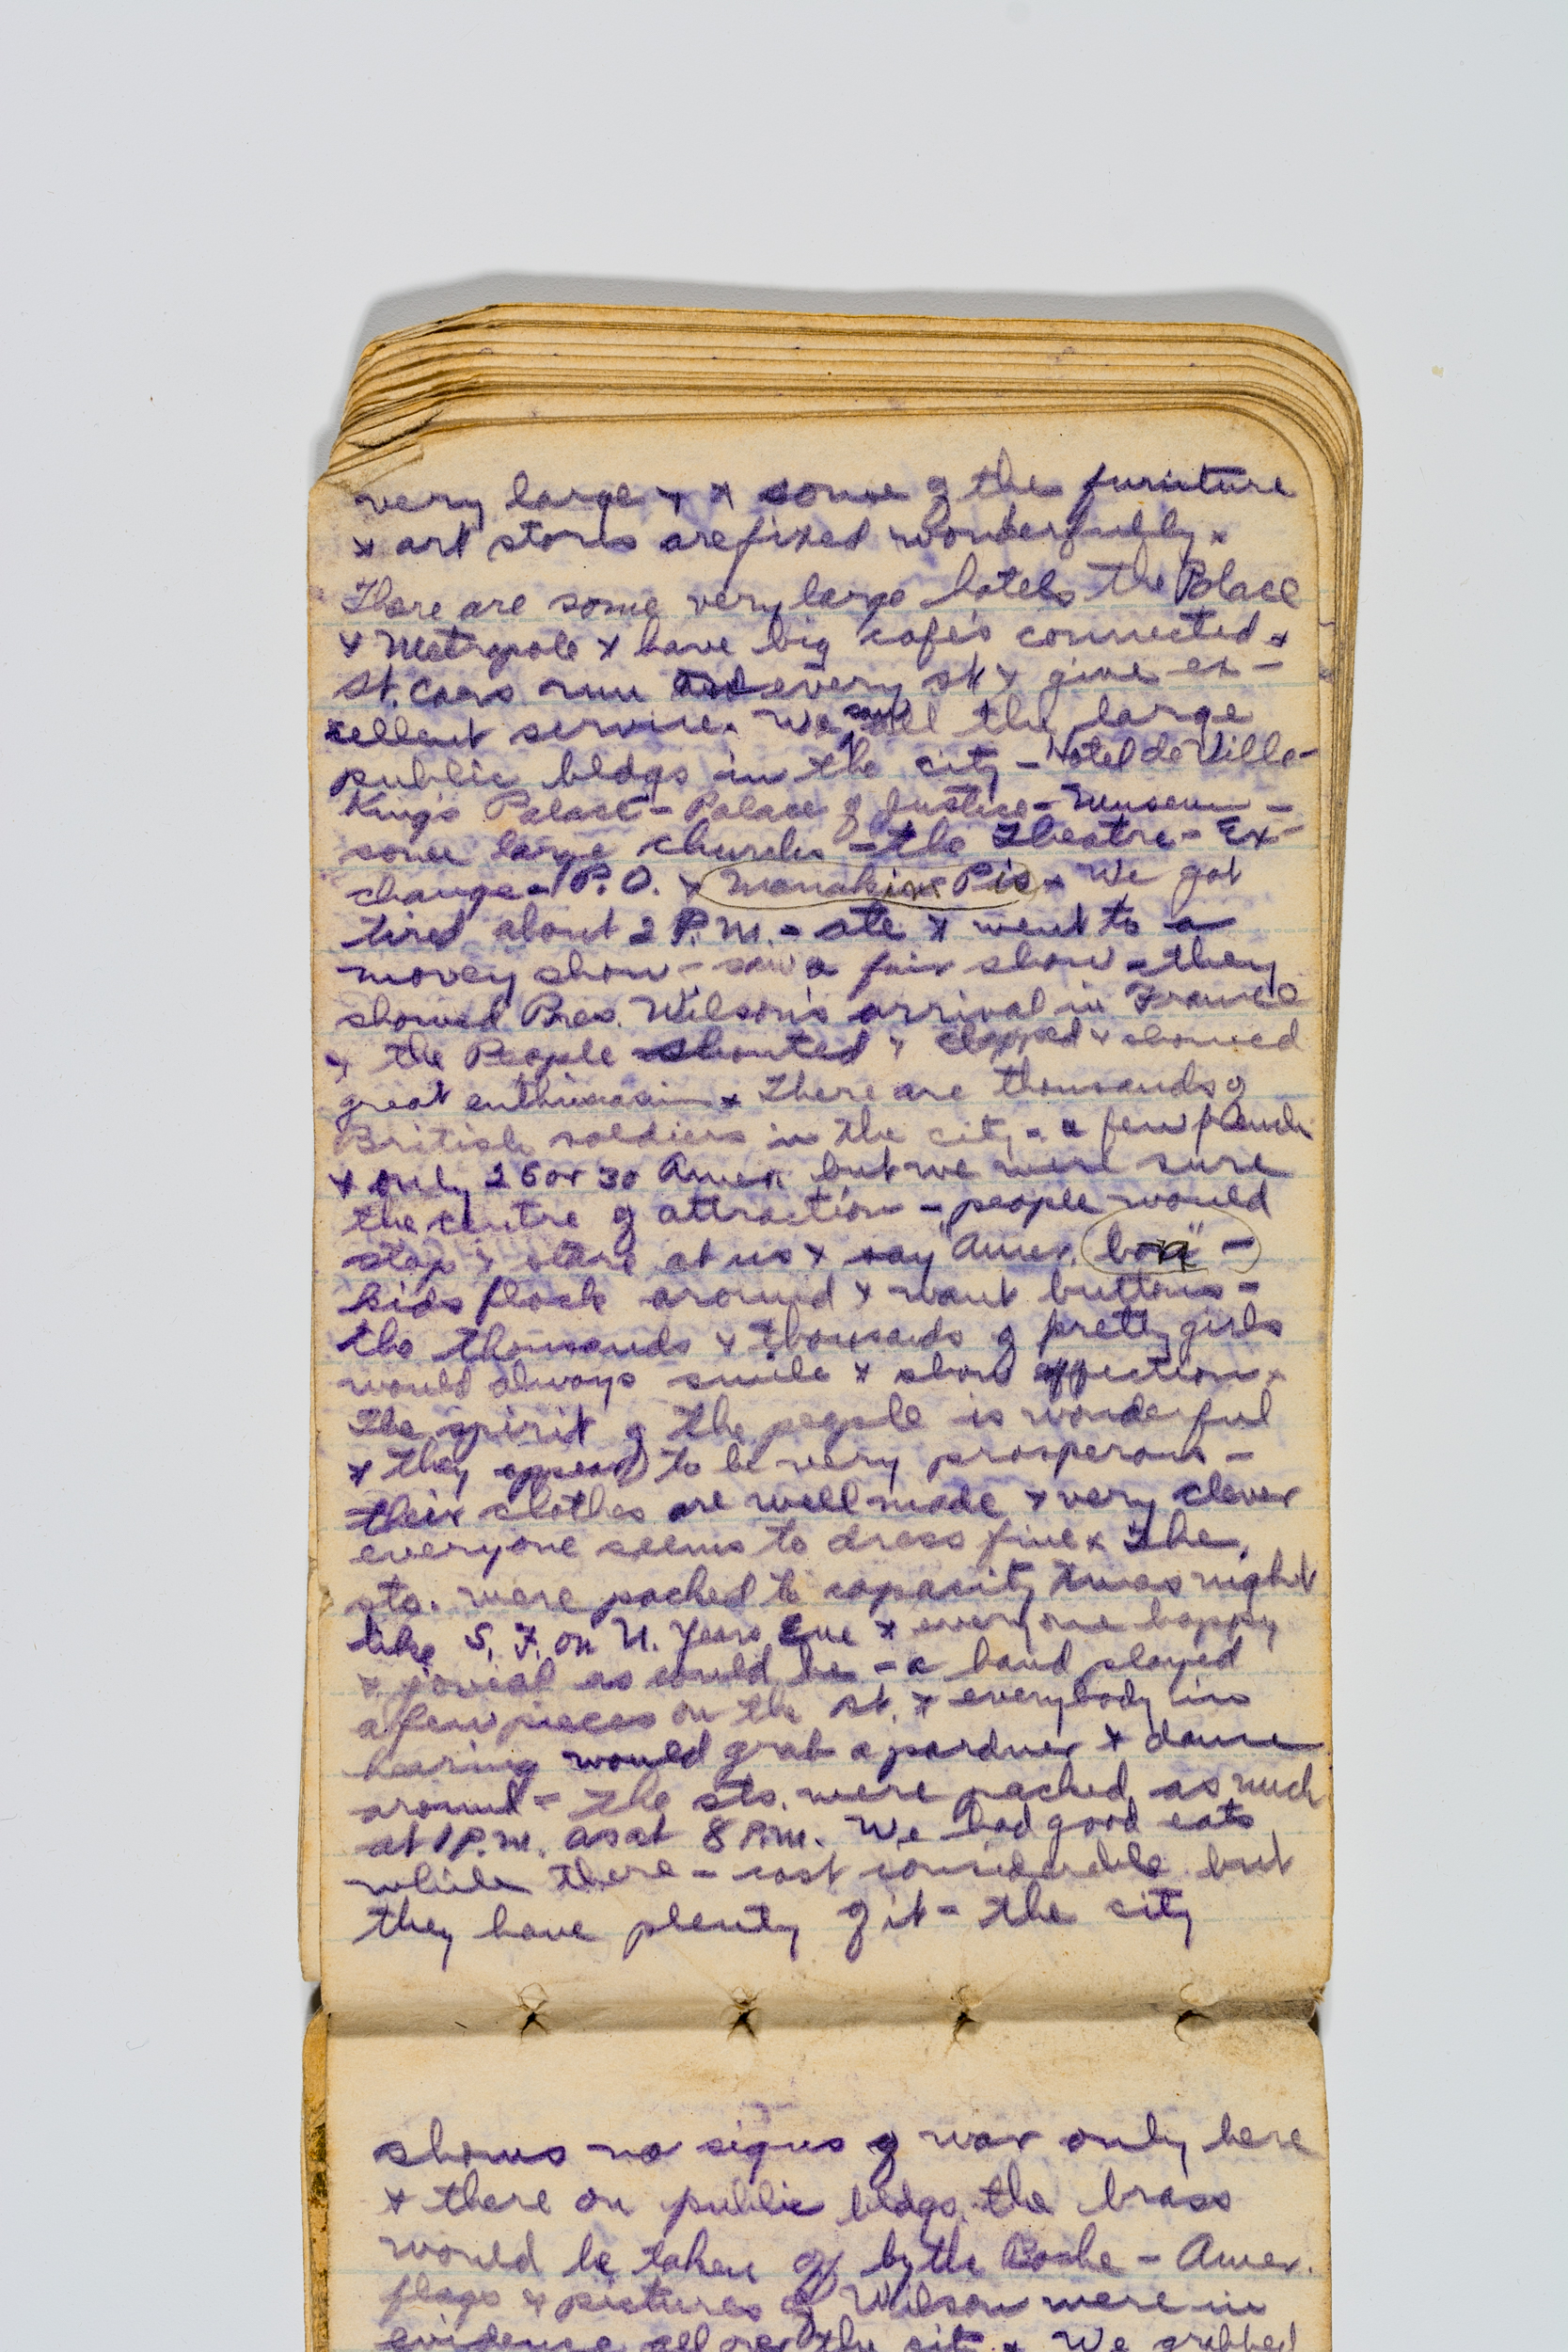 very large x x some of the furniture
x art stores are fixed wonderfully x
There are some very large hotels the Palace
x Metropole x have big cafe's connected x
St. cars run every st x give ex-
cellent service. We saw all the large
public bldgs in the city - Hotel de Ville -
King's Palace - Palace of Justice - Museum -
some large churches - the Theatre - Ex-
change - P.O. x Manakin Pis x We got
tired about 2 P.M. - ate x went to a
movey show - saw a fair show - they
showed Pres. Wilson's arrival in France
x the People shouted x clapped x showed
great enthusiasim x There are thousands of
British soldiers in the city - a few french
x only 25 or 30 Amer. but we were sure
the centre of attraction - people would
stop x stare at us x say "Amer. bon" -
kids flock around x want buttons -
the thousands x thousands of pretty girls
would always smile x show affection x
The spirit of the people is wonderful
x they appear to be very prosperous -
their clothes are well made x very clever
everyone seems to dress fine x The
sts. were packed to capacity twas night
like S. F. on N. Years Eve x everyone happy
x jovial as could be - a band played
a few pieces on the st. x everybody in
hearing would grab a pardner x dance
around - The sts. were packed as much
at 1 P.M. as at 8 P.M. We had good eats
while there - cost considerable but
they have plenty of it - the city
shows no signs of war only here
x there on public bldgs. the brass
would be taken off by the Boche - Amer.
flags x pictures of Wilson were in
evidence all over the city x We grabbed